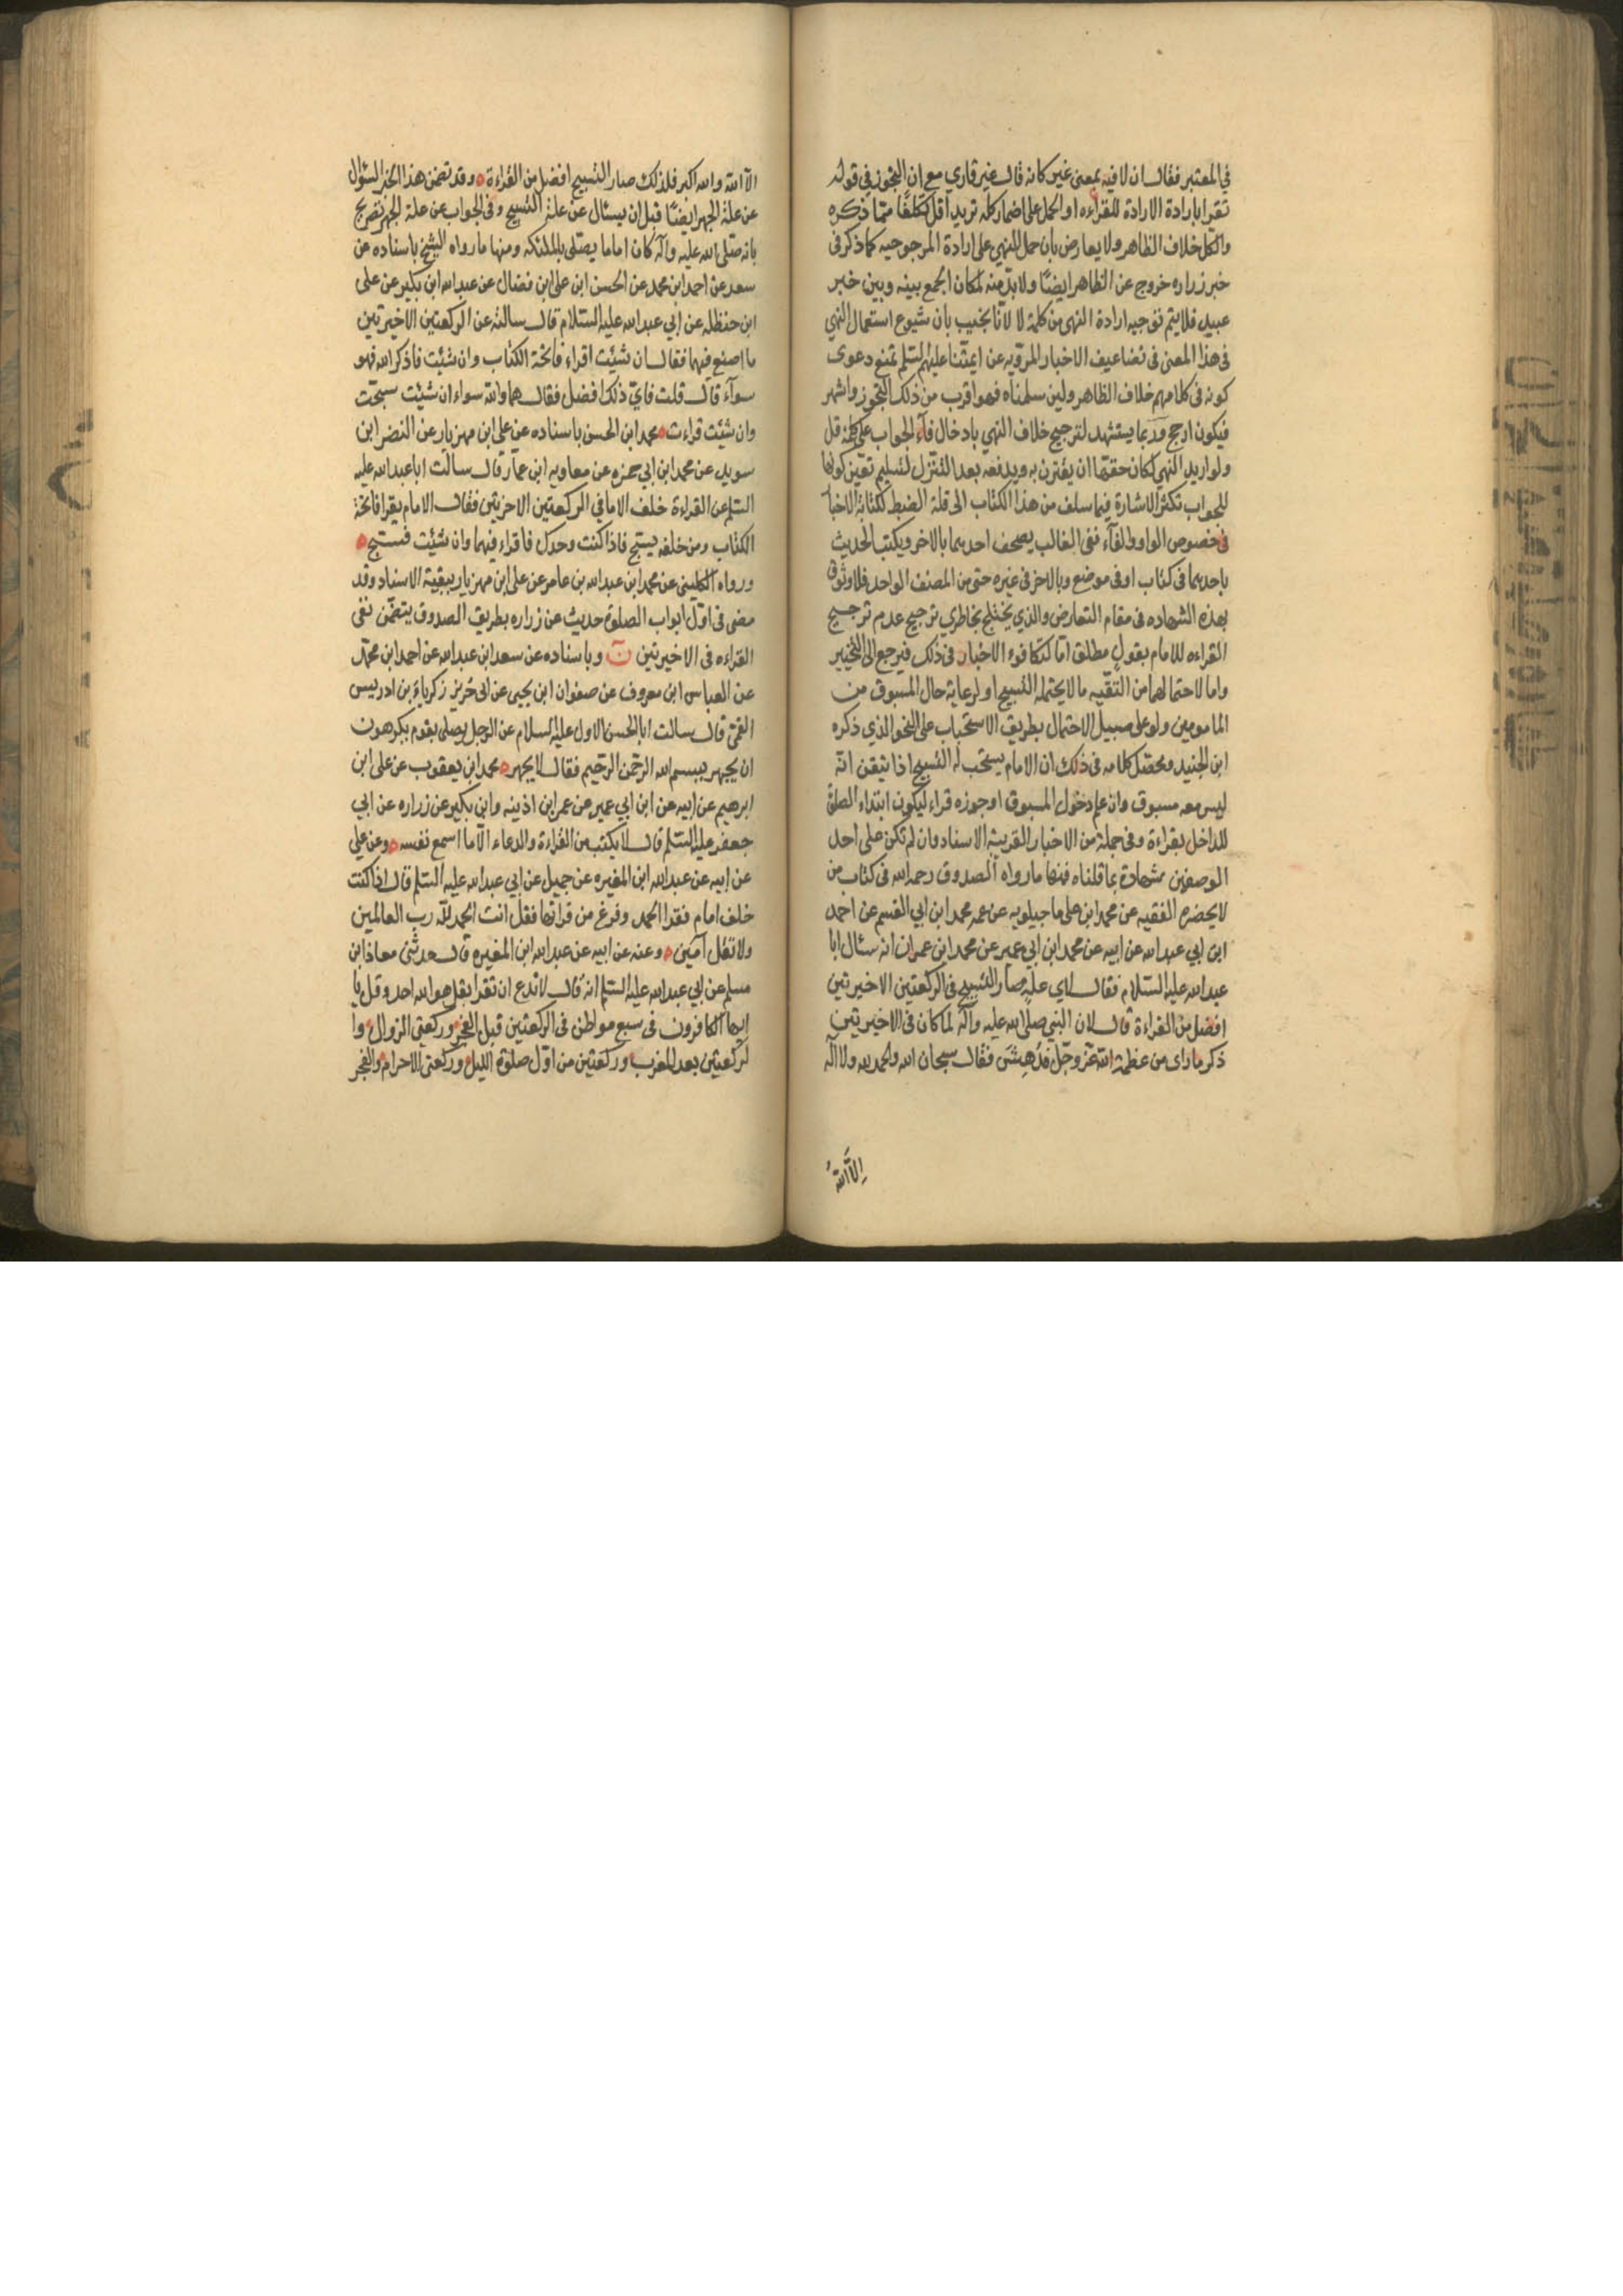 في المعتبر فقال ان لا فيه بمعنى غير كانه قال غير قاري مع ان التجوز في قوله
تقرا بارادة الارادة للقراءه او الحمل على اضمار كلمه تريد اقل تكلفا مما ذكره
والكل خلاف الظاهر ولا يعارض بان حمل النهي على ارادة المرجوحيه كما ذكر في
خبر زراره خروج عن الظاهر ايضا ولا بد منه لمكان الجمع بينه وبين خبر
عبيد فلا يتم توجيه ارادة النهي من كلمة لا لانا نجيب بان شيوع استعمال النهي
في هذا المعنى في تضاعيف الاخبار المرويه عن ايمتنا عليهم السلم تمنع دعوى
كونه في كلامهم خلاف الظاهر ولين سلمناه فهو اقرب من ذلك التجوز واشهر
فيكون ارجح وربما يستشهد لترجيح خلاف النهي بادخال فآء الجواب على كلمة قل
ولو اريد النهي لكان حقها ان يقترن به ويدفعه بعد التنزل لتسليم تعين كونها
للجواب تكثر الاشارة فيما سلف من هذا الكتاب الى قلة الضبط لكتابة الاخبا
في خصوص الواو والفآء ففي الغالب يصحف احدهما بالاخر ويكتب الحديث
باحدهما في كتاب او في موضع وبالاخر في غيره حتى من المصنف الواحد فلا وثوق
بهذه الشهاده في مقام التعارض والذي يختلج بخاطري ترجيح عدم ترجيح
القراءه للامام بقول مطلق اما لتكافوء الاخبار في ذلك فيرجع الى التخيير
واما لاحتمالهما من التقيه ما لا يحتمله التسبيح او لرعاية حال المسبوق من
المامومين ولو على سبيل الاحتمال بطريق الاستحباب على النحو الذي ذكره
ابن الجنيد ومحصل كلامه في ذلك ان الامام يستحب له التسبيح اذا تيقن انه
ليس معه مسبوق وان علم دخول المسبوق او جوزه قراء ليكون ابتداء الصلوة
للداخل بقراءة وفي جملة من الاخبار القريبة الاسناد وان لم تكن على احد
الوصفين شهادة بما قلناه فمنها ما رواه الصدوق رحمه الله في كتاب من
لا يحضره الفقيه عن محمد ابن على ماجيلويه عن عمه محمد ابن ابي القسم عن احمد
ابن ابي عبد الله عن ابيه عن محمد ابن ابي عمير عن محمد ابن عمران انه سئال ابا
عبد الله عليه السلام فقال لاي علة صار التسبيح في الركعتين الاخيرتين
افضل من القراءة قال لان النبي صلى الله عليه وآله لما كان في الاخيرتين
ذكر ما راى من عظمة الله عز وجل فدهش فقال سبحان الله والحمد لله ولا اله
الا الله
الا الله والله اكبر فلذلك صار التسبيح افضل من القراءة وقد تضمن هذا الخبر السؤال
عن علة الجهر ايضا قبل ان يسئال عن علة التسبيح وفي الجواب عن علة الجهر تصريح
بانه صلى الله عليه وآله كان اماما يصلى بالملئكه ومنها ما رواه الشيخ باسناده عن
سعد عن احمد ابن محمد عن الحسن ابن على ابن فضال عن عبد الله ابن بكير عن على
ابن حنظله عن ابي عبد الله عليه السلام قال سالته عن الركعتين الاخيرتين
ما اصنع فيهما فقال ان شئت اقراء فاتحة الكتاب وان شئت فاذكر الله فهو
سوآء قال قلت فاي ذلك افضل فقال هما والله سواء ان شئت سبحت
وان شئت قراءت محمد ابن الحسن باسناده عن على ابن مهزيار عن النضر ابن
سويد عن محمد ابن ابي حمزه عن معاويه ابن عمار قال سالت ابا عبد الله عليه
السلم عن القراءة خلف الامام في الركعتين الاخرتين فقال الامام يقرا فاتحة
الكتاب ومن خلفه يسبح فاذا كنت وحدك فاقراء فيهما وان شئت فسبح
ورواه الكليني عن محمد ابن عبد الله بن عامر عن على ابن مهزيار ببقية الاسناد وقد
مضى في اول ابواب الصلوة حديث عن زراره بطريق الصدوق يتضمن نفي
القراءه في الاخيرتين ن وباسناده عن سعد ابن عبد الله عن احمد ابن محمد
عن العباس ابن معروف عن صفوان ابن يحيى عن ابى جرير زكرياء بن ادريس
القمى قال سالت ابا الحسن الاول عليه السلام عن الرجل يصلى بقوم يكرهون
ان يجهر ببسم الله الرحمن الرحيم فقال لا يجهر محمد ابن يعقوب عن على ابن
ابرهيم عن ابيه عن ابن ابي عمير عن عمر ابن اذينه وابن بكير عن زراره عن ابي
جعفر عليه السلم قال لا يكتب من القراءة والدعاء الا ما اسمع نفسه وعن علي
عن ابيه عن عبد الله ابن المغيره عن جميل عن ابي عبد الله عليه السلم قال اذا كنت
خلف امام فقرا الحمد وفرغ من قراتها فقل انت الحمد لله رب العالمين
ولا تقل آمين وعنه عن ابيه عن عبد الله ابن المغيره قال حدثنى معاذ ابن
مسلم عن ابي عبد الله عليه السلم انه قال لا تدع ان تقرا بقل هو الله احد وقل يا
ايها الكافرون في سبع مواطن في الركعتين قبل الفجر وركعتى الزوال وا
لركعتين بعد المغرب وركعتين من اول صلوة الليل وركعتى الاحرام والفجر